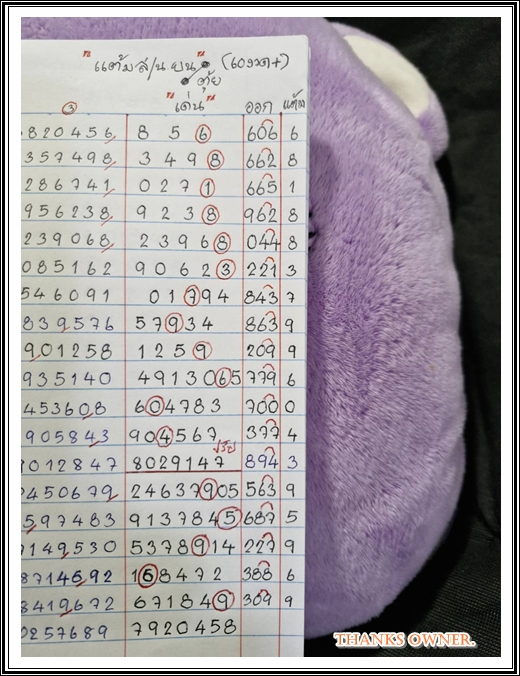 "แต้มส/น.ยน" (เองวด+)
ตุ้ย
③ "เด่น" ออก แต้ม
820456 8 5 6 606 6
357498 3 4 9 8 662 8
286741 0 2 7 1 665 1
956238 9 2 3 8 962 8
239068 2 3 9 6 8 044 8
085162 9 0 6 2 3 221 3
546091 0 1 7 9 4 843 7
839576 5 7 9 3 4 863 9
901258 1 2 5 9 209 9
935140 4913065 779 6
453608 604783 700 0
905843 904567 377 4
012847 8029147 894 3
2450679 24637905 563 9
597483 9137845 687 5
7149530 5378914 227 9
8714692 168472 388 6
3419672 671849 309 9
0257689 7920458
THANKS OWNER.